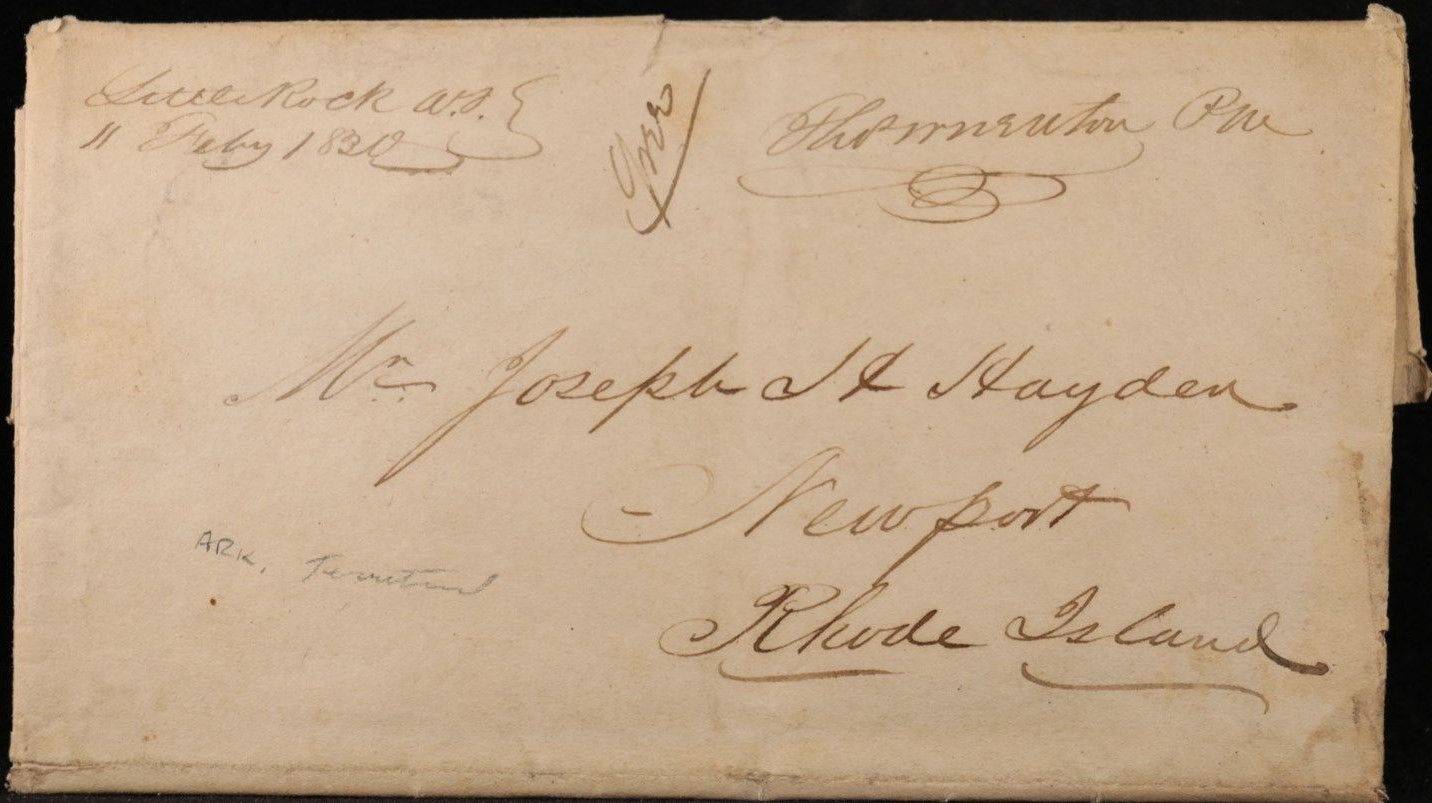 Little Rock A.T.
11 Feby 1830
Free
Thos W Newton P M
Mr. Joseph H Hayden
Newport
Rhode Island
ARK. Territorial